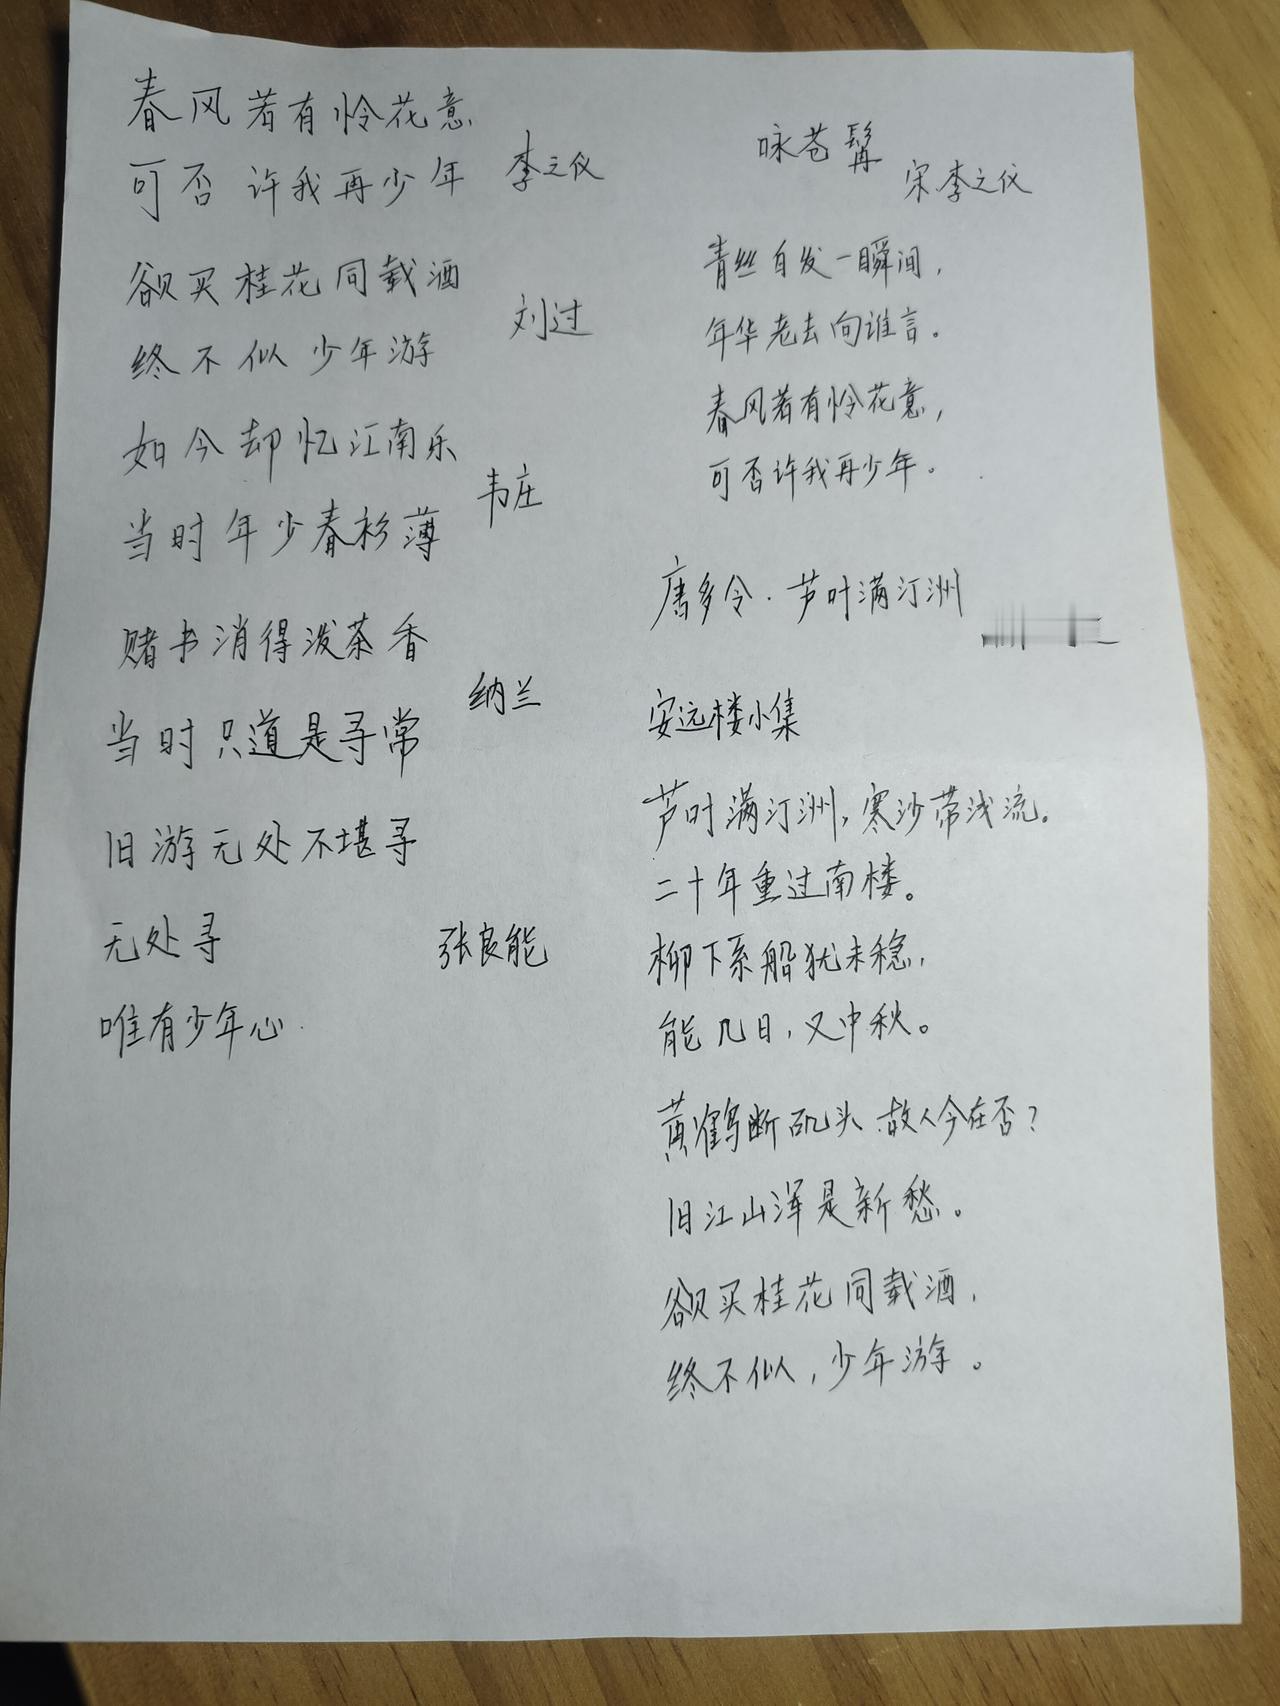 春风若有怜花意
可否许我再少年 李之仪
欲买桂花同载酒
终不似少年游 刘过
如今却忆江南乐
当时年少春衫薄 韦庄
赌书消得泼茶香
当时只道是寻常 纳兰
旧游无处不堪寻
无处寻 张良能
唯有少年心
咏苍髯
宋李之仪
青丝自发一瞬间，
年华老去向谁言。
春风若有怜花意，
可否许我再少年。
唐多令·芦叶满汀洲
安远楼小集
芦叶满汀洲，寒沙带浅流。
二十年重过南楼。
柳下系船犹未稳，
能几日，又中秋。
黄鹤断矶头 故人今在否？
旧江山浑是新愁。
欲买桂花同载酒，
终不似，少年游。